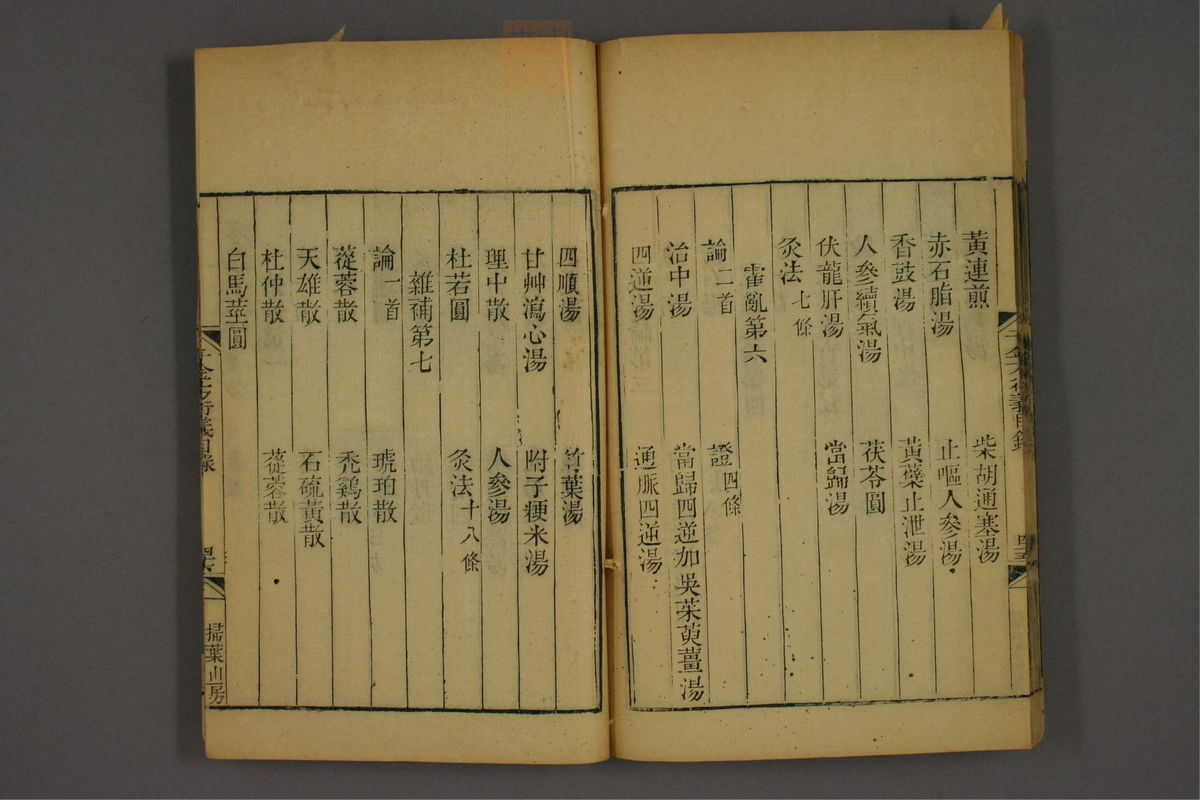 黃連煎 柴胡通塞湯
赤石脂湯 止嘔人參湯
香豉湯 黃蘗止泄湯
人參續氣湯 茯苓圓
伏龍肝湯 當歸湯
灸法七條
霍亂第六
論二首 證四條
治中湯 當歸四逆加吳茱萸薑湯
四逆湯 通脈四逆湯
四順湯 竹葉湯
甘艸瀉心湯 附子粳米湯
理中散 人參湯
杜若圓 灸法十八條
雜補第七
論一首 琥珀散
蓯蓉散 禿鷄散
天雄散 石硫黃散
杜仲散 蓯蓉散
白馬莖圓
千金方衍義目錄 四六 掃葉山房